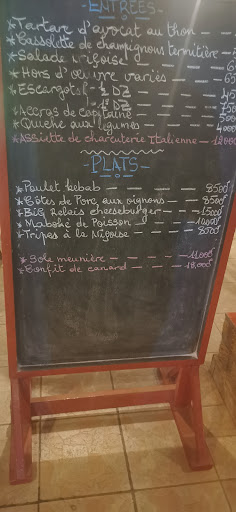 ENTRÉES
*Tartare d'avocat au thon
*Cassolette de champignons termitière
*Salade niçoise
*Hors d'œuvre variés
*Escargots
*Accras de capitaine
*Quiche aux légumes — 4000
*Assiette de charcuterie Italienne — 12000
PLATS
*Poulet kebab — — — — 8500f
*Côtes de Porc aux oignons — — 8500f
*BIG Relais cheeseburger — — 15000f
*Maboké de Poisson — — 10000f
*Tripes à la Niçoise — — 8500f
*Sole meunière — — — 11000f
*Confit de canard — — — 18,000f